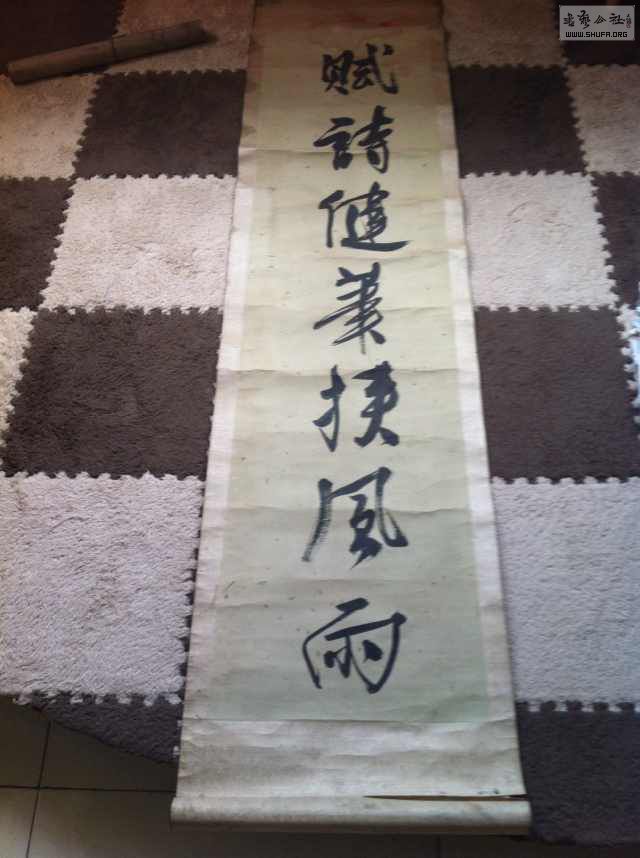 賦詩健筆挟風雨
书艺公社
WWW.SHUFA.ORG